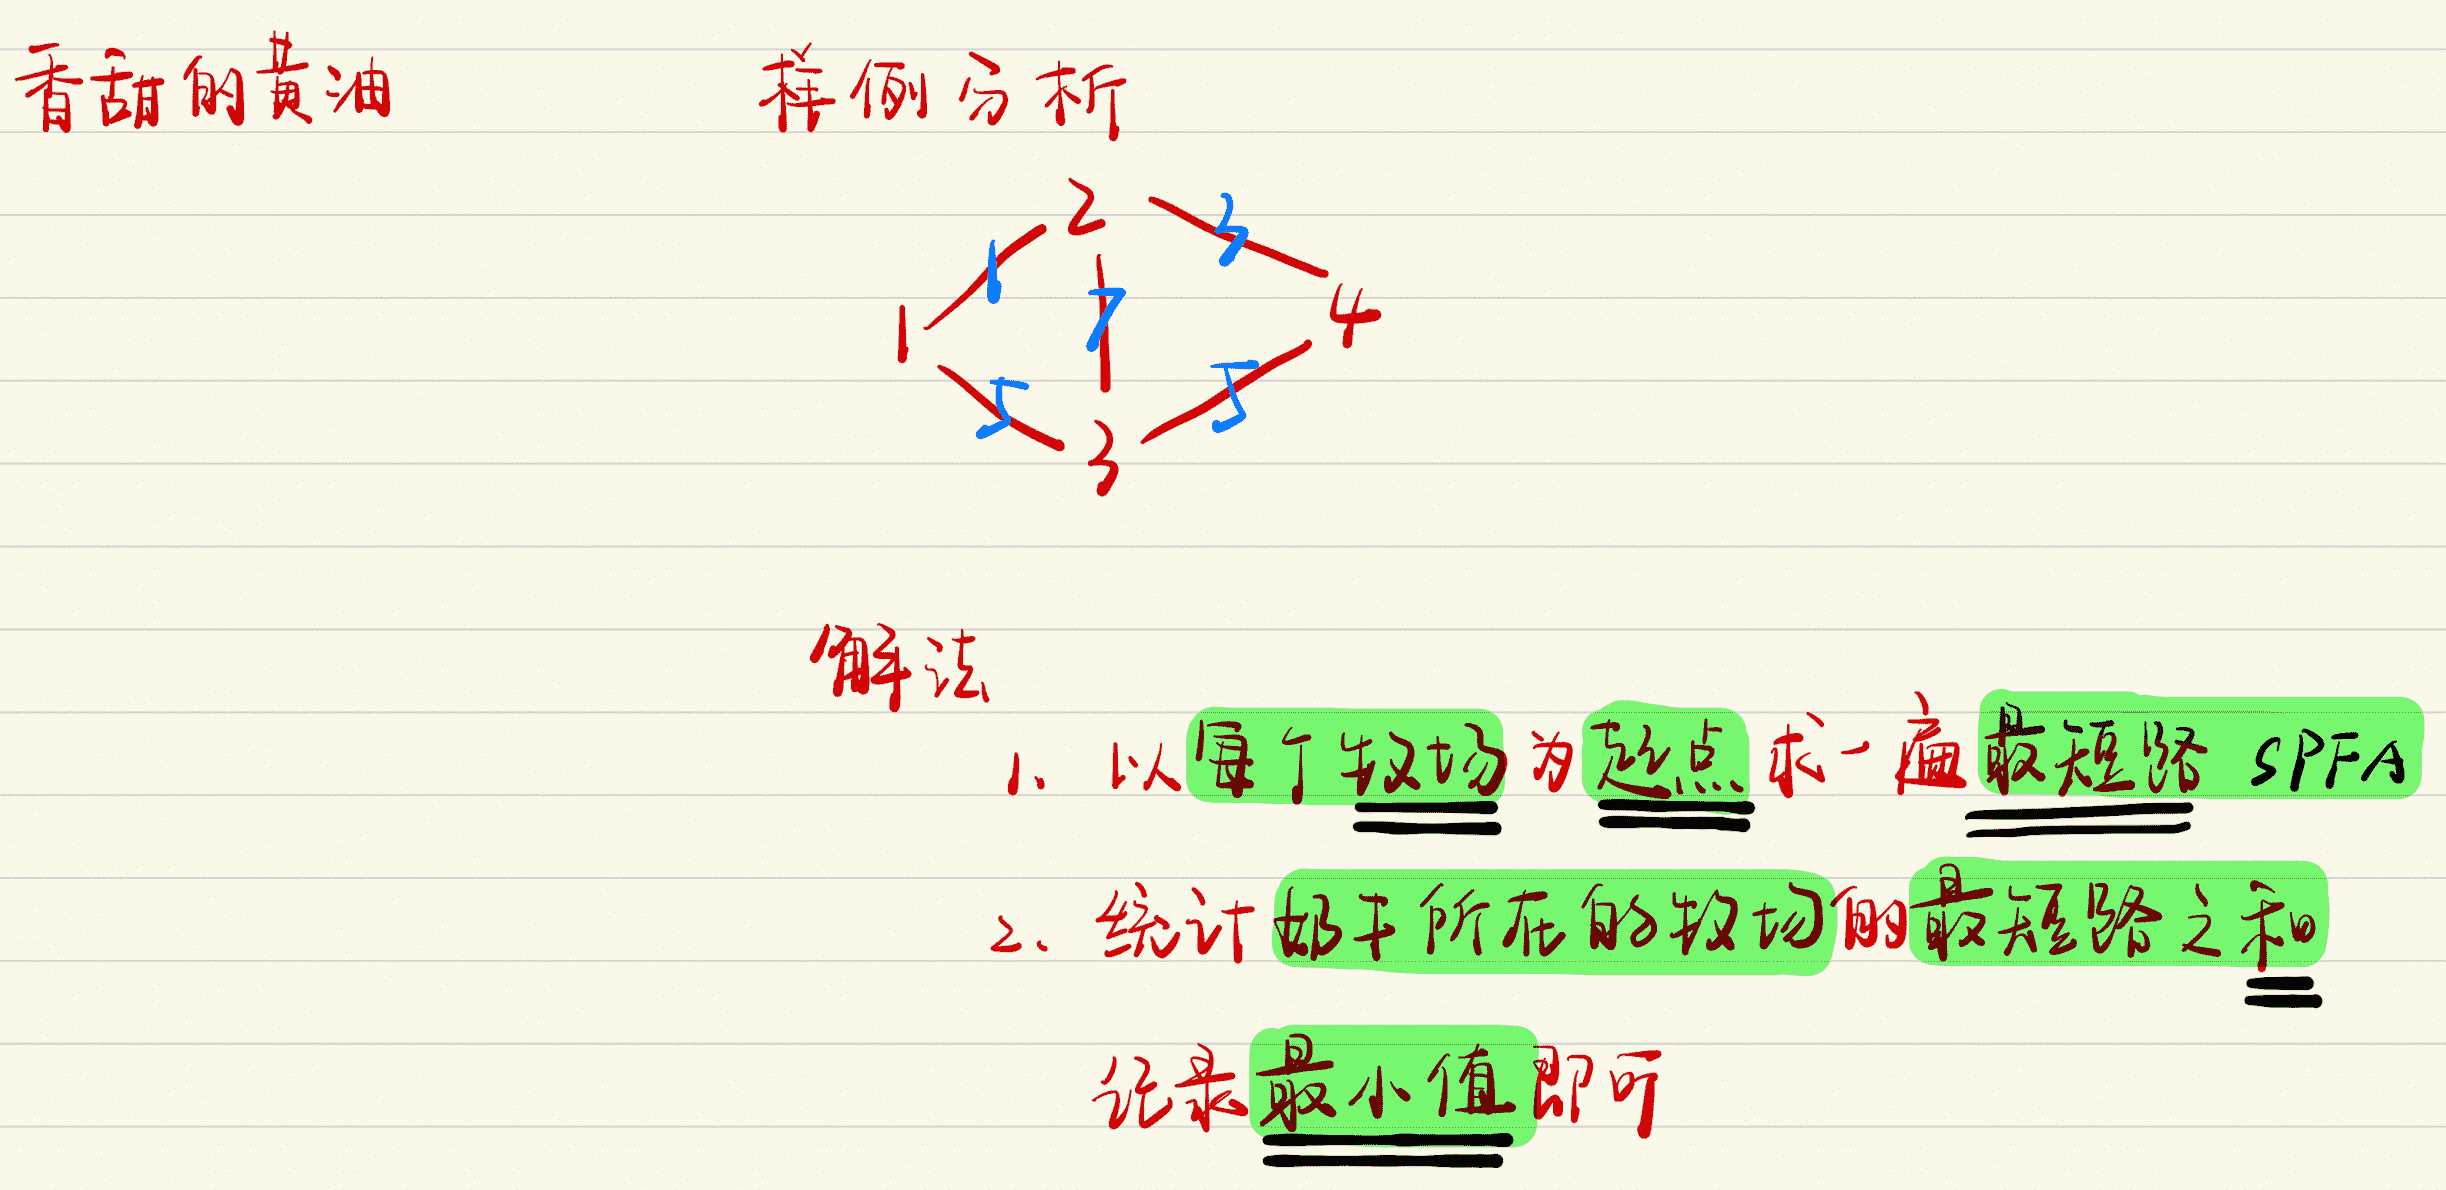 香甜的黄油 样例分析
2
3
1
7
4
1
5
5
3
解法
1. 以每个牧场为起点求一遍最短路 SPFA
2. 统计奶牛所在的牧场的最短路之和
记录最小值即可